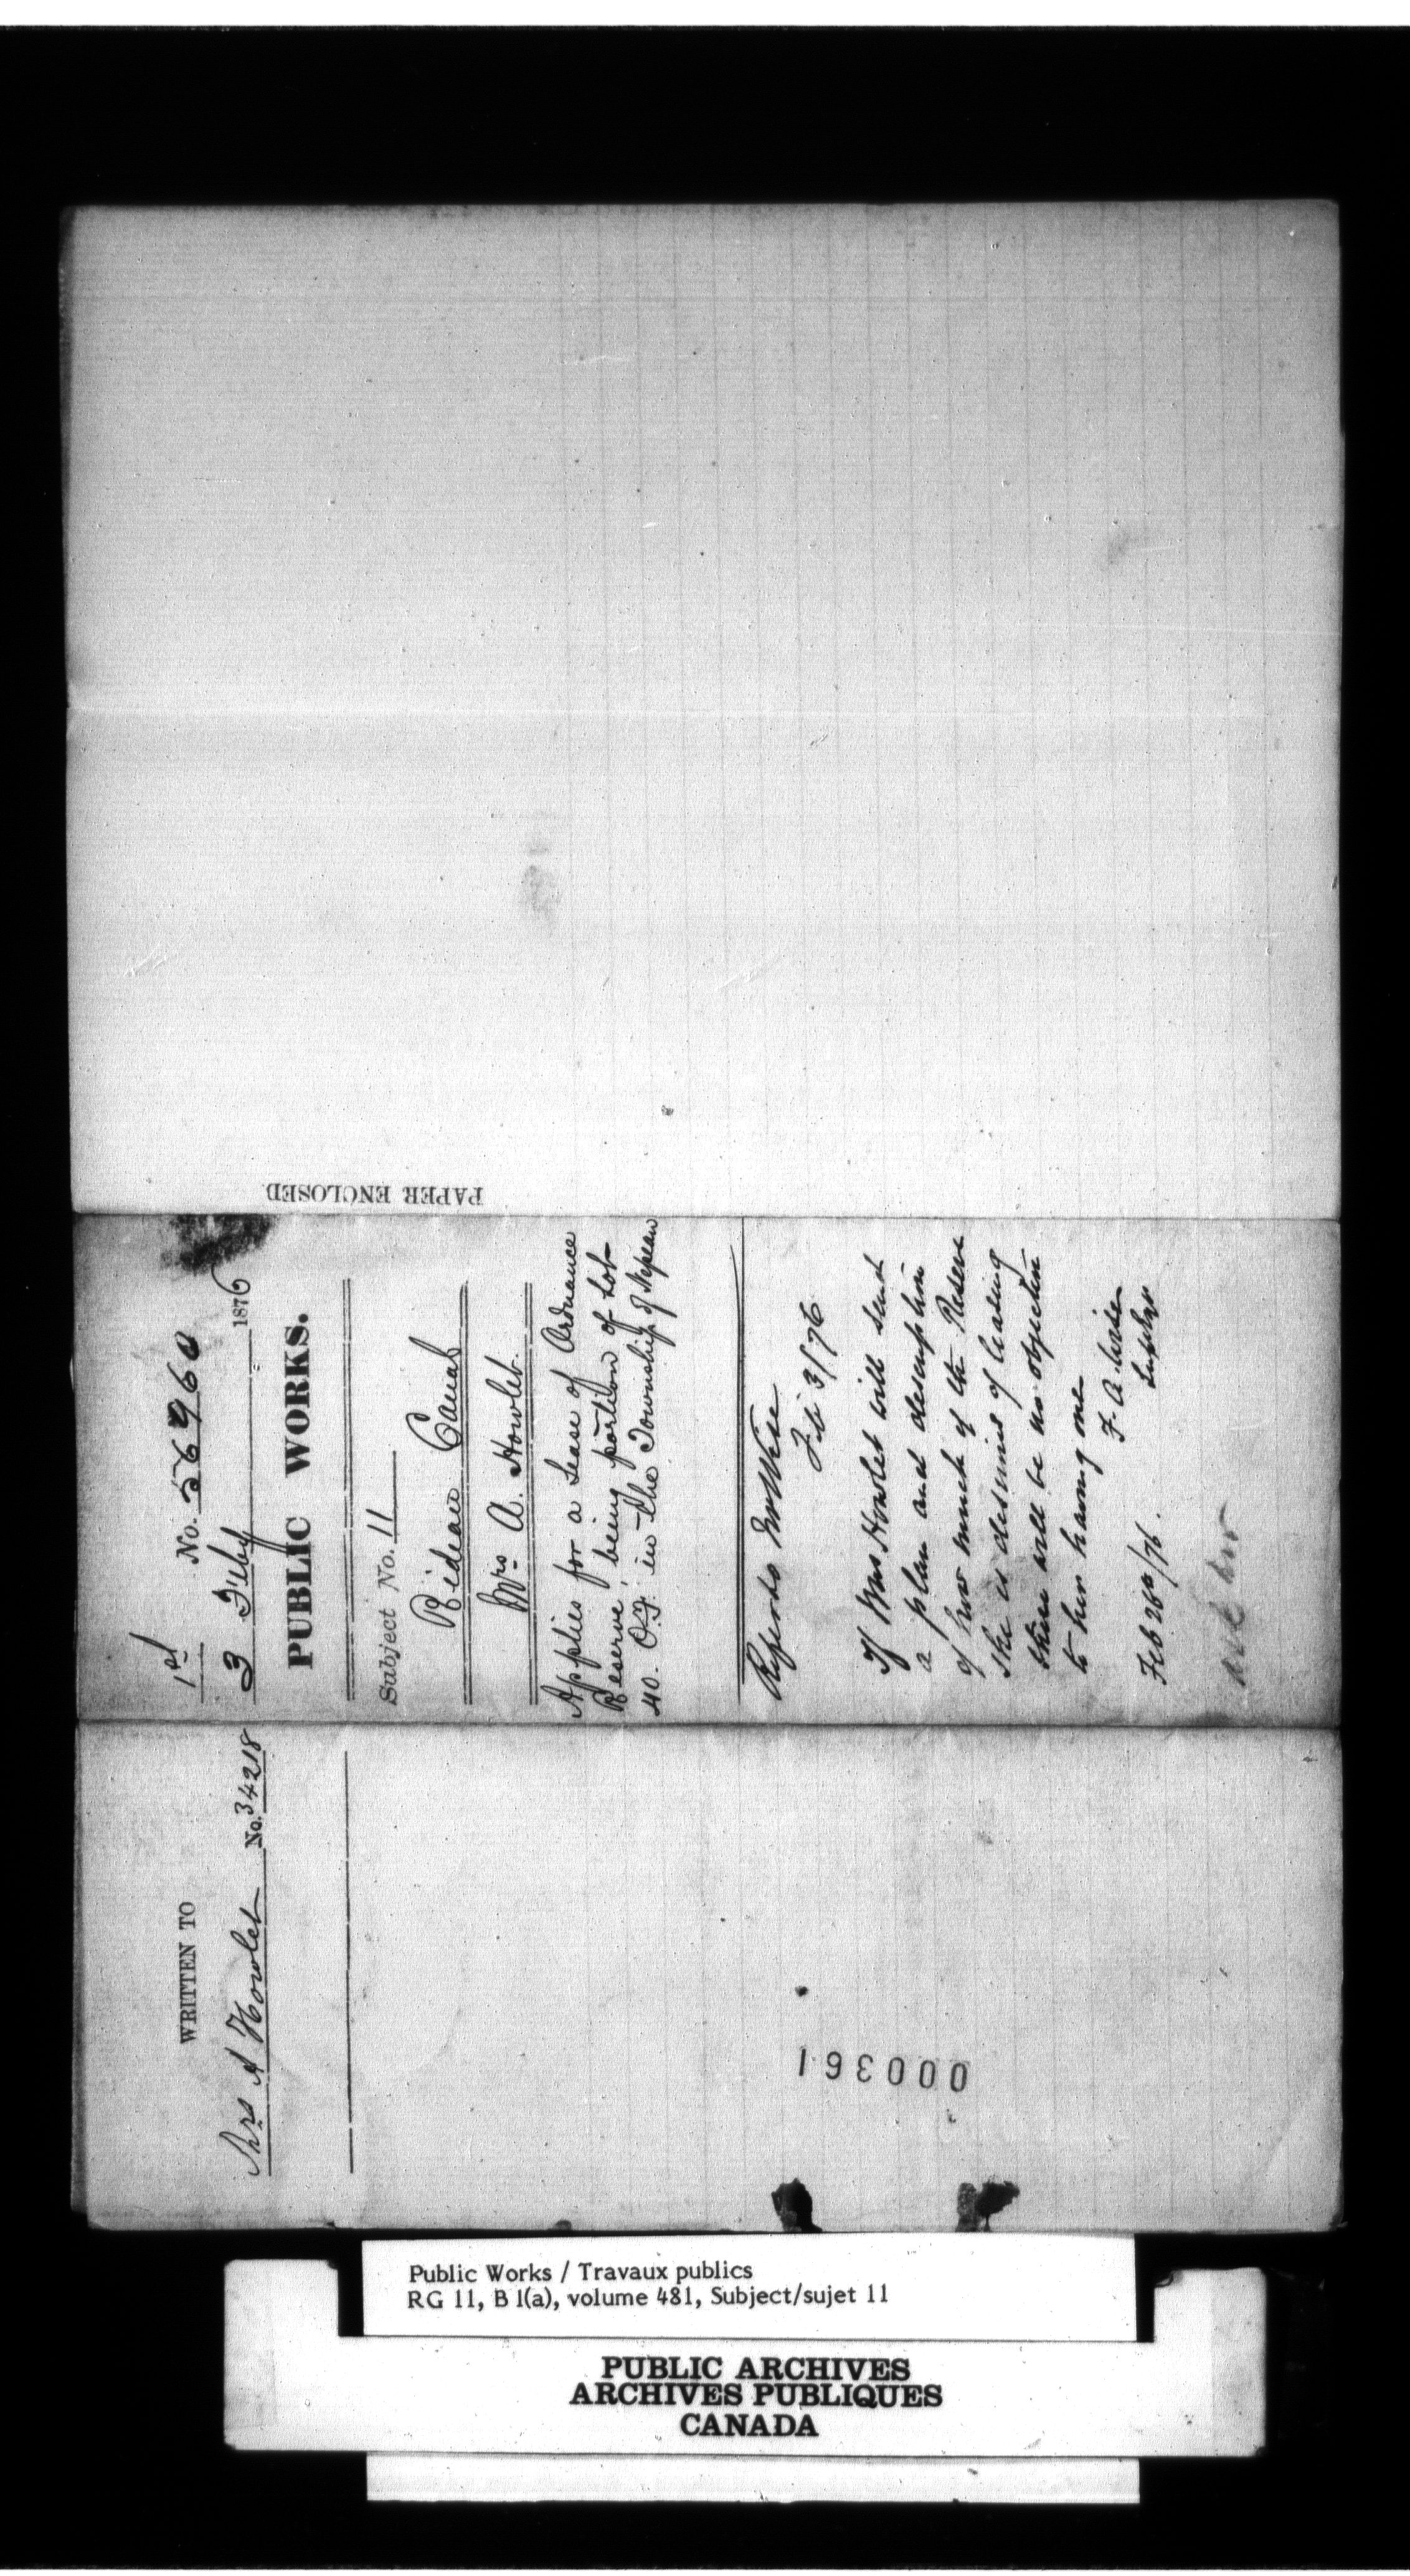 PAPER ENCLOSED
1st
No. 56960
3 Feby 1876
PUBLIC WORKS.
Subject No. 11
Rideau Canal
Mrs A. Howlet.
Applies for a Lease of Ordnance
Reserve, being portion of Lot
40. O.F. in the Township of Nepean
Report Mr Wise
Feb 3/76
If Mrs Howlet will send
a plan and description
of how much of the Reserve
she is desirous of leasing
there will be no objection
to her having one
F. A. Wise
Feb 26/76.
WRITTEN TO
Mrs A Howlet No. 34218
000361
Public Works / Travaux publics
RG 11, B 1(a), volume 481, Subject/sujet 11
PUBLIC ARCHIVES
ARCHIVES PUBLIQUES
CANADA